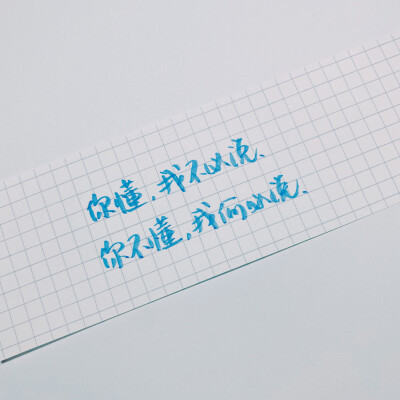 你懂,我不必说、
你不懂,我何必说、